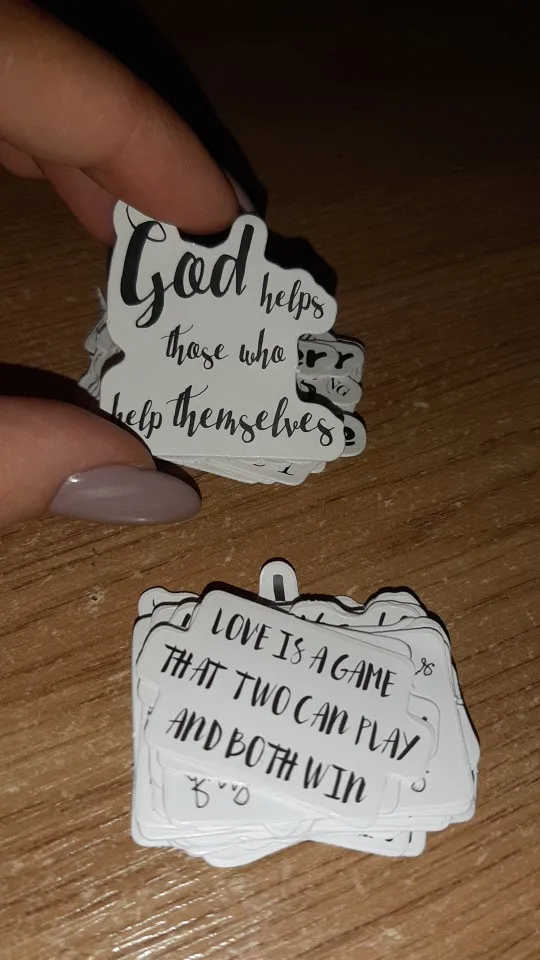 God helps
those who
help themselves
NG
LOVE IS A GAME
THAT TWO CAN PLAY
AND BOTH WIN